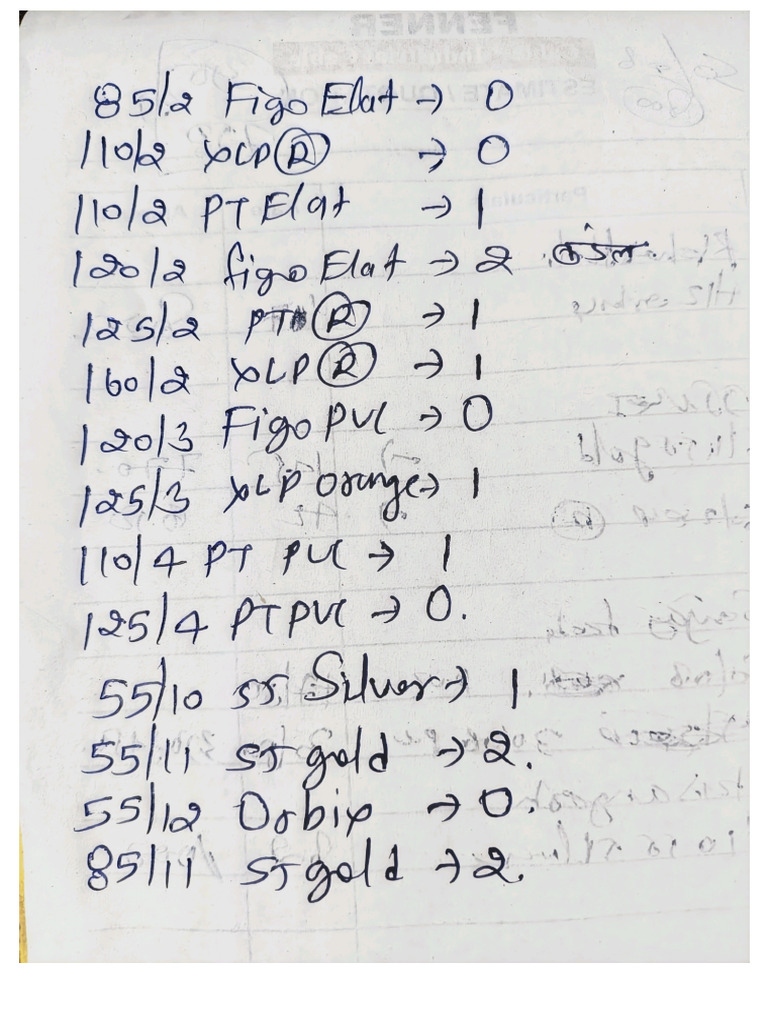 85/2 Figo Elat → 0
110/2 XLP Ⓡ → 0
110/2 PT Elat → 1
120/2 figo Elat → 2
125/2 PT Ⓡ → 1
160/2 XLP Ⓡ → 1
120/3 Figo PVC → 0
125/3 XLP orange → 1
110/4 PT PVC → 1
125/4 PT PVC → 0.
55/10 SS Silver → 1.
55/11 SJ gold → 2.
55/12 Orbix → 0.
85/11 SJ gold → 2.